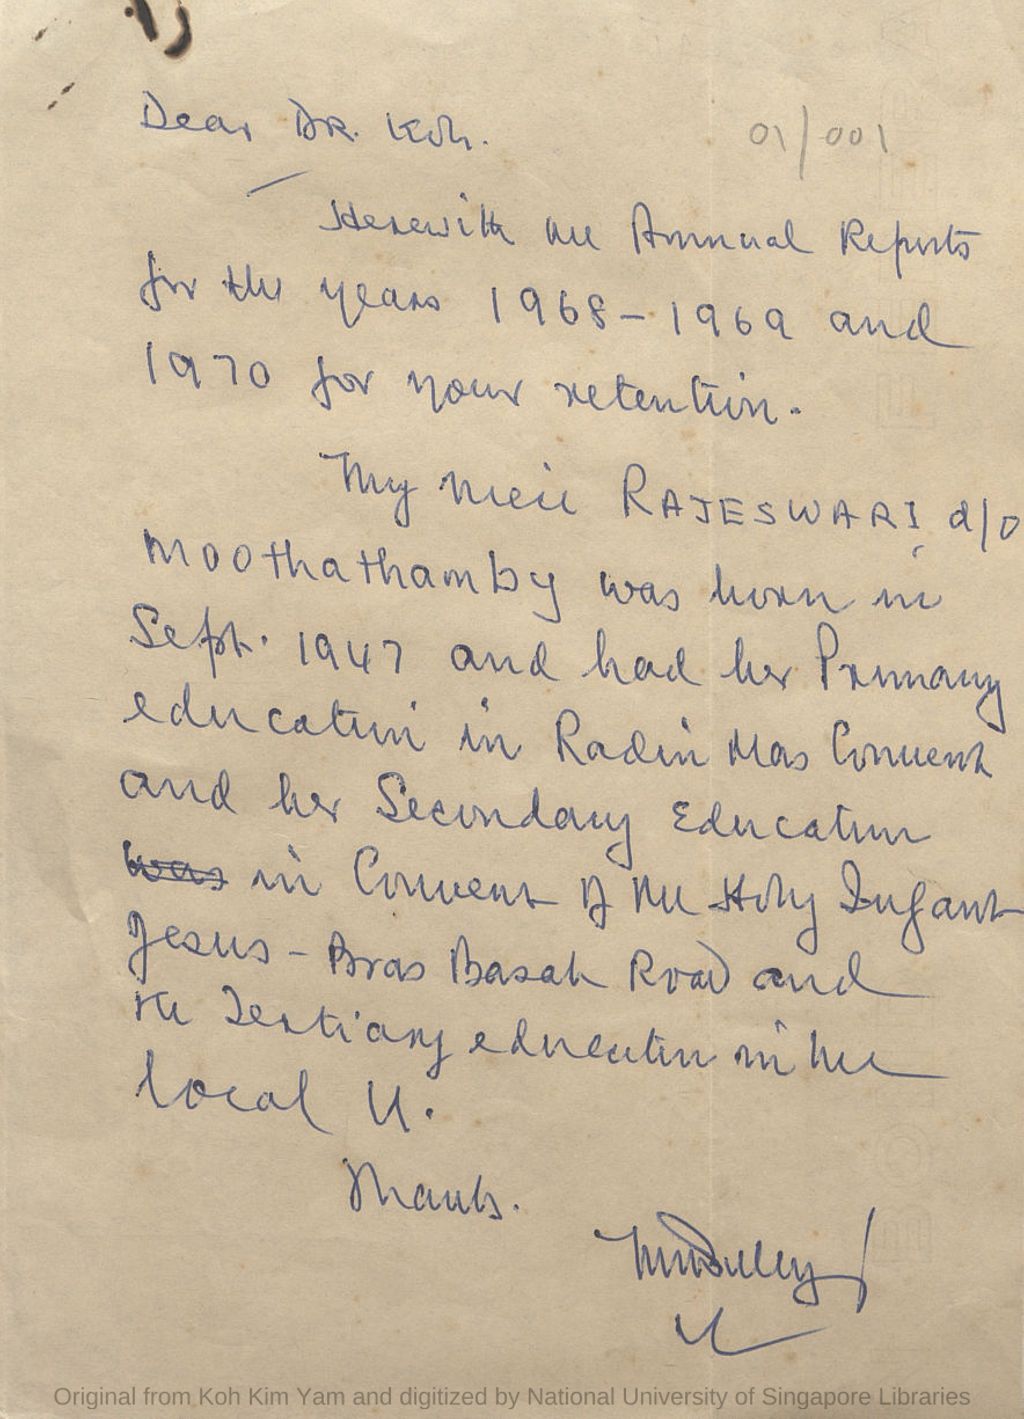 Dear DR. Koh.
01/001
Herewith the Annual Reports
for the years 1968-1969 and
1970 for your retention.
My niece RAJESWARI d/o
Moothathamby was born in
Sept. 1947 and had her Primary
education in Radin Mas Convent
and her Secondary Education
was in Convent of the Holy Infant
Jesus - Bras Basah Road and
the Tertiary education in the
local U.
Thanks.
Original from Koh Kim Yam and digitized by National University of Singapore Libraries